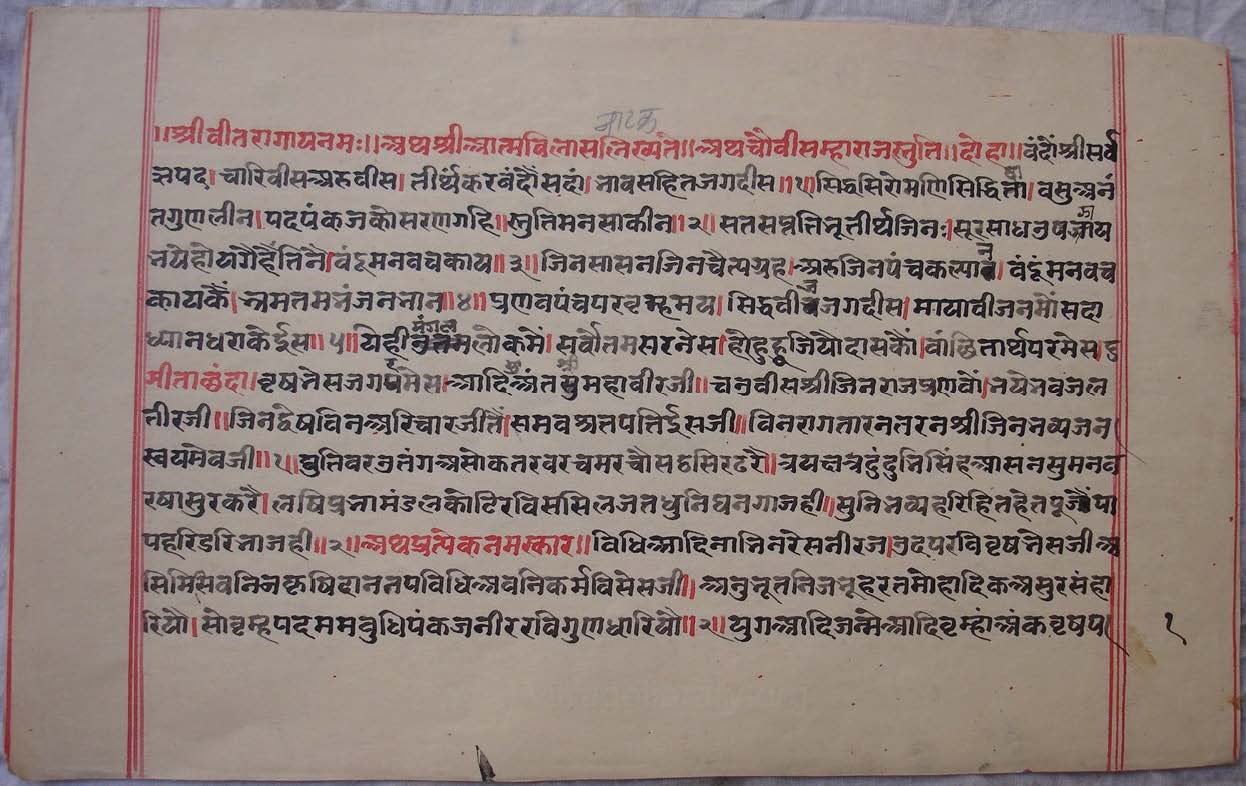 नाटक
॥श्रीवीतरागायनमः॥अथश्रीआत्मविलासलिख्यते॥अथचौवीसम्हाराजस्तुति॥दोहा॥वंदौंश्रीसर्व
ज्ञपद।चारिवीसअरुवीस।तीर्थंकरवंदौंसदां।भावसहितजगदीस॥१॥सिद्धसिरोमणिसिद्धिता।वसुअनं
तगुणलीन।पदपंकजकोसरणगहि॥स्तुतिमनसाकीन॥२॥सतसप्ततिभूतीर्थजिनः।सूरसाधउपजाय
भयेहोयगैहैतिनै।वंदूमनवचकाय॥३॥जिनसासनजिनचैत्यग्रह।अरुजिनपंचकल्यान।वंदूंमनवच
कायकैं।भ्रमतमभंजनभान॥४॥प्रणवपंचपरवृम्हमय।सिद्धवीजजगदीस।मायावीजनमोंसदा
ध्यानधराकेईस॥५॥येहीमंगललोकमें।सर्वोतमसरनेस।होहुदुजियोदासकौं।वांछितार्थपरमेस।
गीताछंदा।वृषभेसजग आदिअंतसुमहावीरजी॥चउवीसश्रीजिनराजप्रणवौं।भयेभवजल
तीरजी॥जिनद्वेषविनअरिचारजीते।समवअतपतिईसजी॥विनरागतारनतरनश्रीजिनभव्यजन
स्वयमेवजी॥१॥प्रतिवरउतंगअसोकतरवरचमरचौसठसिरढरै।त्रयछत्रदुंदुभिसिंहआसनसुमनव
रषासुरकरै।लषिप्रभामंडलकोटिरविससिलजतधुनिघनगाजही॥सुनिभव्यहरिहितहेतपूजैंपा
पहरिडरिभाजही॥२॥अथप्रत्येकनमस्कार॥विधिआदिनाभिनरेसनीरज।उदपरविवृषभेसजीअ
सिमिसिवनिजकृषिदानतपविधिअवनिकर्मविसेसजी।अनुभूतनिजभूहरतमोहादिकअसुरसंहा
रियौ।सोवृम्हपदममबुधिपंकजनीररविगुणधारियौ॥२॥युगआदिजन्मेआदिवृम्हांअंकवृषप
१